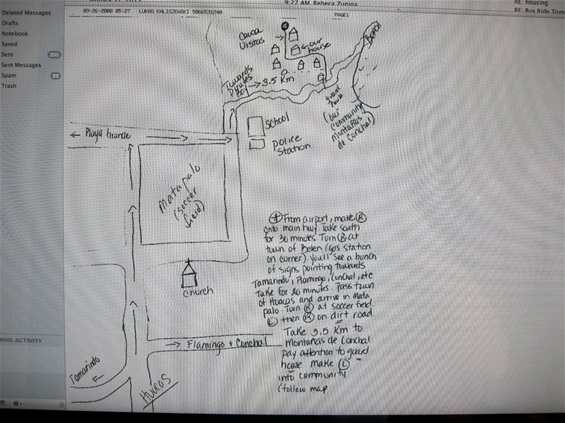 Deleted Messages
Drafts
Notebook
Saved
Sent
Sent Messages
Spam
Trash
MAIL ACTIVITY
9:22 AM, Rebeca Zuniga
RE: housing
PAGE1
Casa
Vistas
our
house
Towards
3.5 Km
guard
house
(our
community
Montañas
de Conchal
School
police
station
← Playa Grande
Matapalo
(soccer
field)
church
→ Flamingo & Conchal
Tamarindo
From airport, make R
onto main hwy. Take south
for 30 minutes Turn R at
town of Belen (gas station
on corner) you'll see a bunch
of signs pointing towards
Tamarindo, Flamingo, Conchal, etc
Take for 20 minutes. Pass town
of Huacas and arrive in Mata
palo. Turn R at soccer field
L then R on dirt road
Take 3.5 Km to
Montañas de Conchal
pay attention to guard
house make L
into community
(follow map